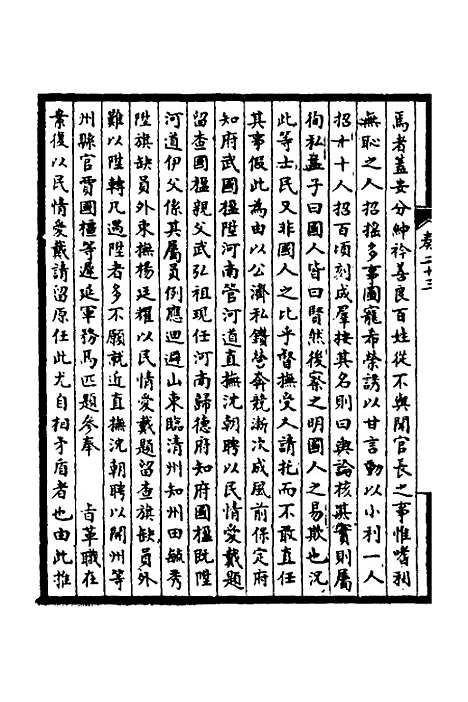 馬者蓋安分紳衿善良百姓從不與聞官長之事惟嗜利
無恥之人招搖多事圖寵希榮誘以甘言動以小利一人
招十十人招百頃刻成羣按其名則曰輿論核其實則屬
徇私孟子曰國人皆曰賢然後察之明國人之易欺也況
此等士民又非國人之比乎督撫受人請托而不敢直任
其事假此為由以公濟私鑽營奔競漸次成風前保定府
知府武國楹陞河南管河道直撫沈朝聘以民情愛戴題
留查國楹親父武弘祖現任河南歸德府知府國楹既陞
河道伊父係其屬員例應迴避山東臨清州知州田敏秀
陞旗缺員外東撫楊廷耀以民情愛戴題留查旗缺員外
難以陞轉凡遇陞者多不願就近直撫沈朝聘以開州等
州縣官賈國橿等遲延軍務馬匹題參奉 旨革職在
案復以民情愛戴請留原任此尤自相矛盾者也由此推
卷二十三